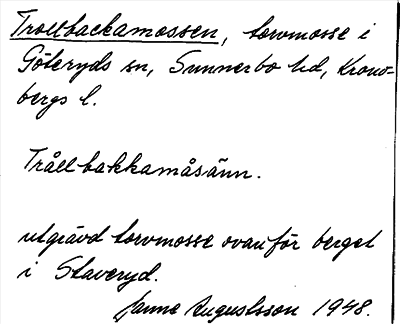 Trollbackamossen, torvmosse i
Göteryds sn, Sunnerbo hd, Krono-
bergs l.
Tråll bakkamåsänn.
utgrävd torvmosse ovanför berget
i Staveryd.
Janne Augustsson 1948.